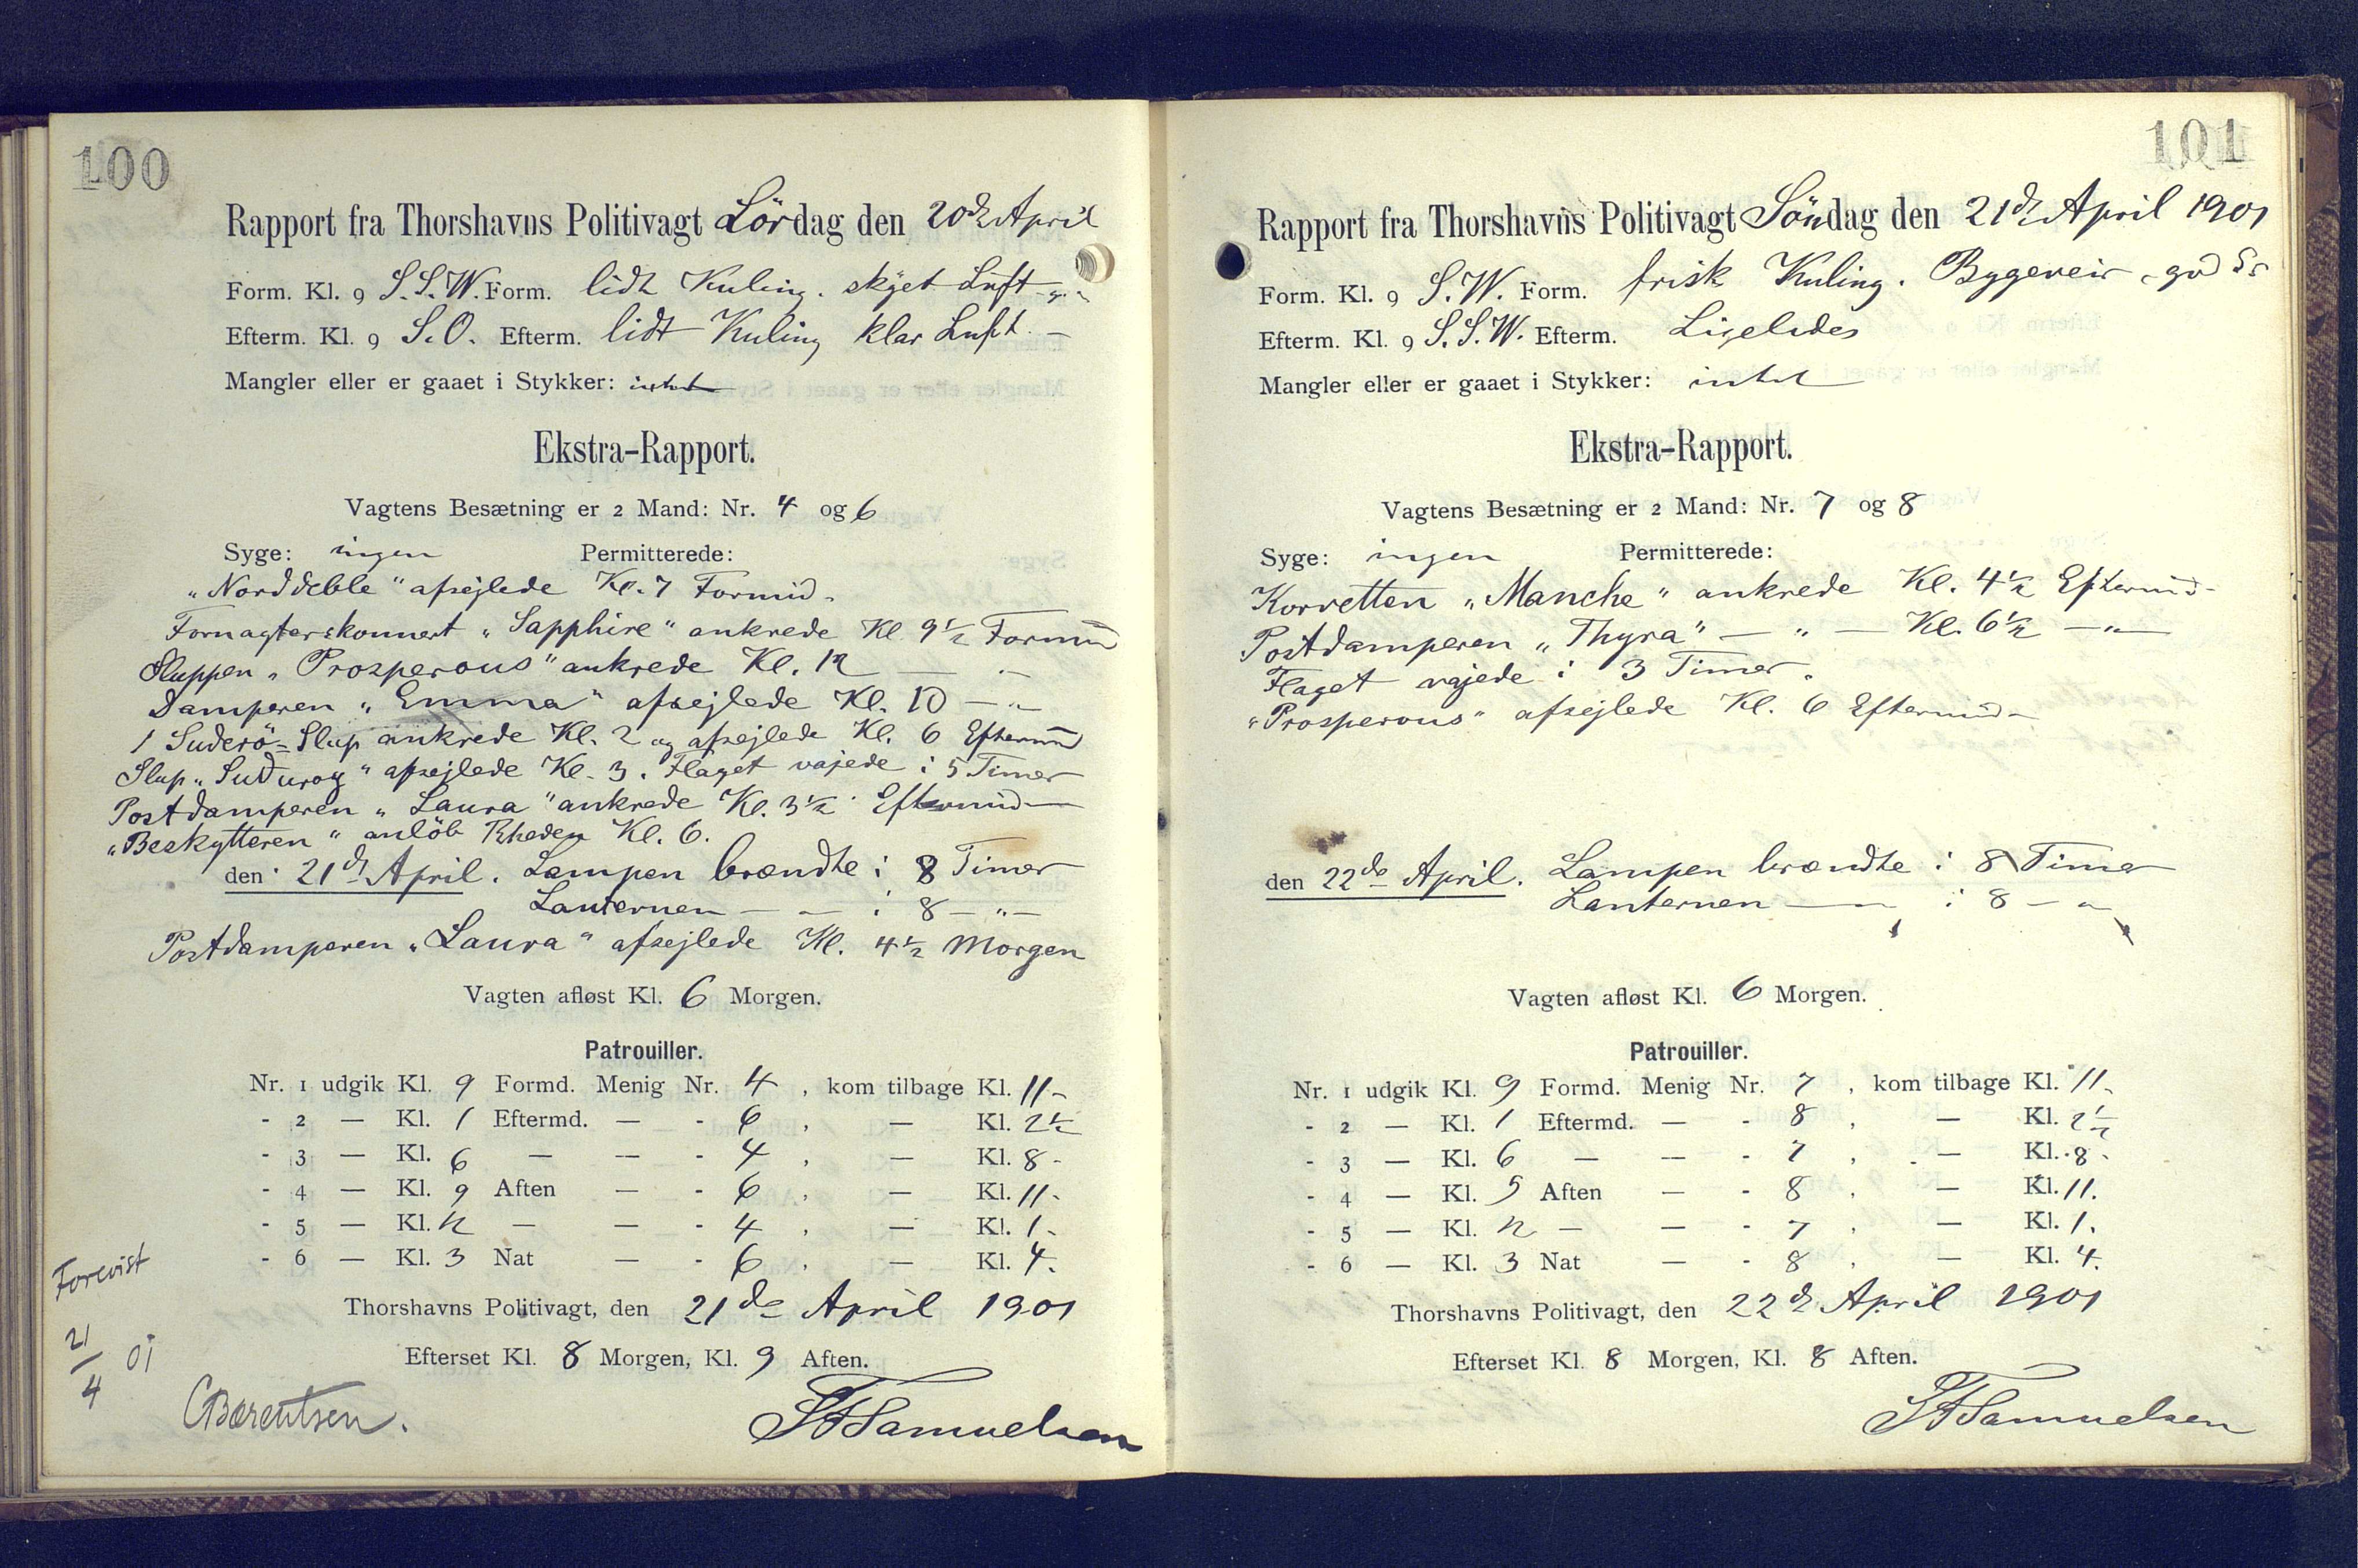 100
Rapport fra Thorshavns Politivagt Lördag den 20de April
Form. Kl. 9 S.S.W. Form. lidt Kuling. skyet Luft
Efterm. Kl. 9 S.O. Efterm. lidt Kuling klar Luft. —
Mangler eller er gaaet i Stykker: intet
Ekstra-Rapport.
Vagtens Besætning er 2 Mand: Nr. 4 og 6
Syge: ingen Permitterede:
„Norddeble" afsejlede Kl. 7 Formid.
Fornagterskonnert „Sapphire" ankrede Kl 9½ Formid
Sluppen „Prosperous" ankrede Kl. 12 — „ —
Damperen „Emma" afsejlede Kl. 10 — „ —
1 Suderö-Slup ankrede Kl. 2 og afsejlede Kl. 6 Eftermd
Slup „Suduroy" afsejlede Kl. 3. Flaget vajede i 5 Timer
Postdamperen „Laura" ankrede Kl. 3½ Eftermid—
„Beskytteren" anlöb Rheden Kl. 6.
den 21de April. Lampen brændte i 8 Timer
Lanternen — — i 8 — „ —
Postdamperen „Laura" afsejlede Kl. 4½ Morgen
Vagten afløst Kl. 6 Morgen.
Patrouiller.
Nr. 1 udgik Kl. 9 Formd. Menig Nr. 4, kom tilbage Kl. 11-
- 2 — Kl. 1 Eftermd. — - 6, — Kl. 2½
- 3 — Kl. 6 — — - 4, — Kl. 8-
- 4 — Kl. 9 Aften — - 6, — Kl. 11-
- 5 — Kl. 12 — — - 4, — Kl. 1-
- 6 — Kl. 3 Nat — - 6, — Kl. 4.
Thorshavns Politivagt, den 21de April 1901
Efterset Kl. 8 Morgen, Kl. 9 Aften.
Forevist
21/4 01
CBærentsen.
SFSamuelsen
101
Rapport fra Thorshavns Politivagt Söndag den 21de April 1901
Form. Kl. 9 S.W. Form. frisk Kuling. Bygeveir
Efterm. Kl. 9 S.S.W. Efterm. Ligeledes
Mangler eller er gaaet i Stykker: intet
Ekstra-Rapport.
Vagtens Besætning er 2 Mand: Nr. 7 og 8
Syge: ingen Permitterede:
Korvetten „Manche" ankrede Kl. 4½ Eftermid-
Postdamperen „Thyra" — „ — Kl. 6½ — „ —
Flaget vajede i 3 Timer.
„Prosperous" afsejlede Kl. 6 Eftermid-
den 22de April. Lampen brændte i 8 Timer
Lanternen — „ i 8 — „
Vagten afløst Kl. 6 Morgen.
Patrouiller.
Nr. 1 udgik Kl. 9 Formd. Menig Nr. 7, kom tilbage Kl. 11-
- 2 — Kl. 1 Eftermd. — - 8, — Kl. 2½
- 3 — Kl. 6 — — - 7, — Kl. 8-
- 4 — Kl. 9 Aften — - 8, — Kl. 11.
- 5 — Kl. 12 — — - 7, — Kl. 1.
- 6 — Kl. 3 Nat — - 8, — Kl. 4.
Thorshavns Politivagt, den 22de April 1901
Efterset Kl. 8 Morgen, Kl. 8 Aften.
SFSamuelsen